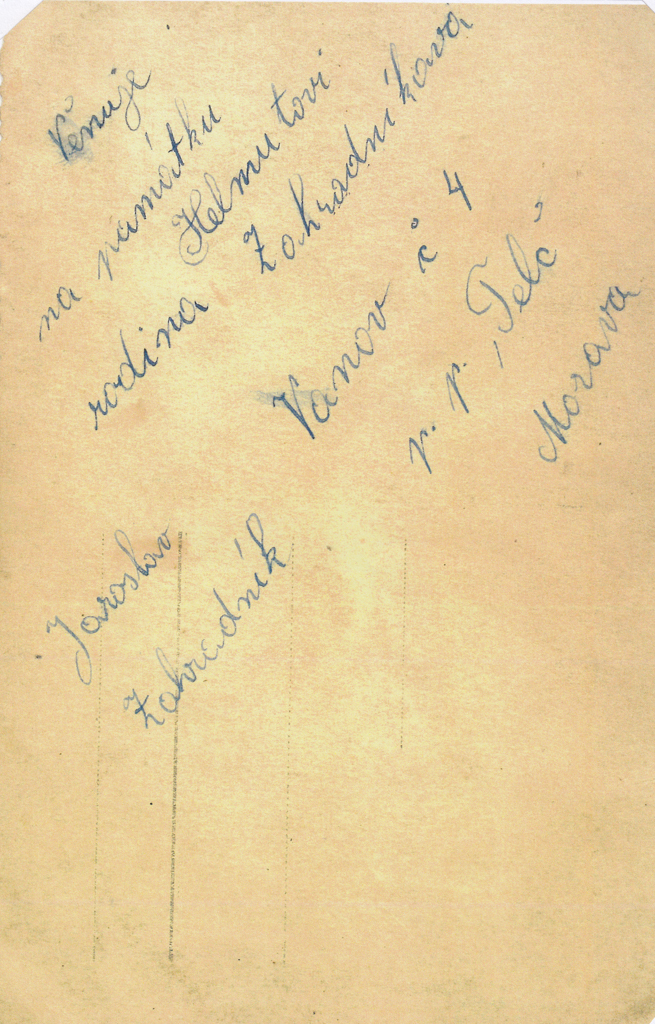 Věnuje
na památku
Helmutovi
rodina Zahradníkova
Vanov č 4
p. p. Telč
Morava
Jaroslav
Zahradník